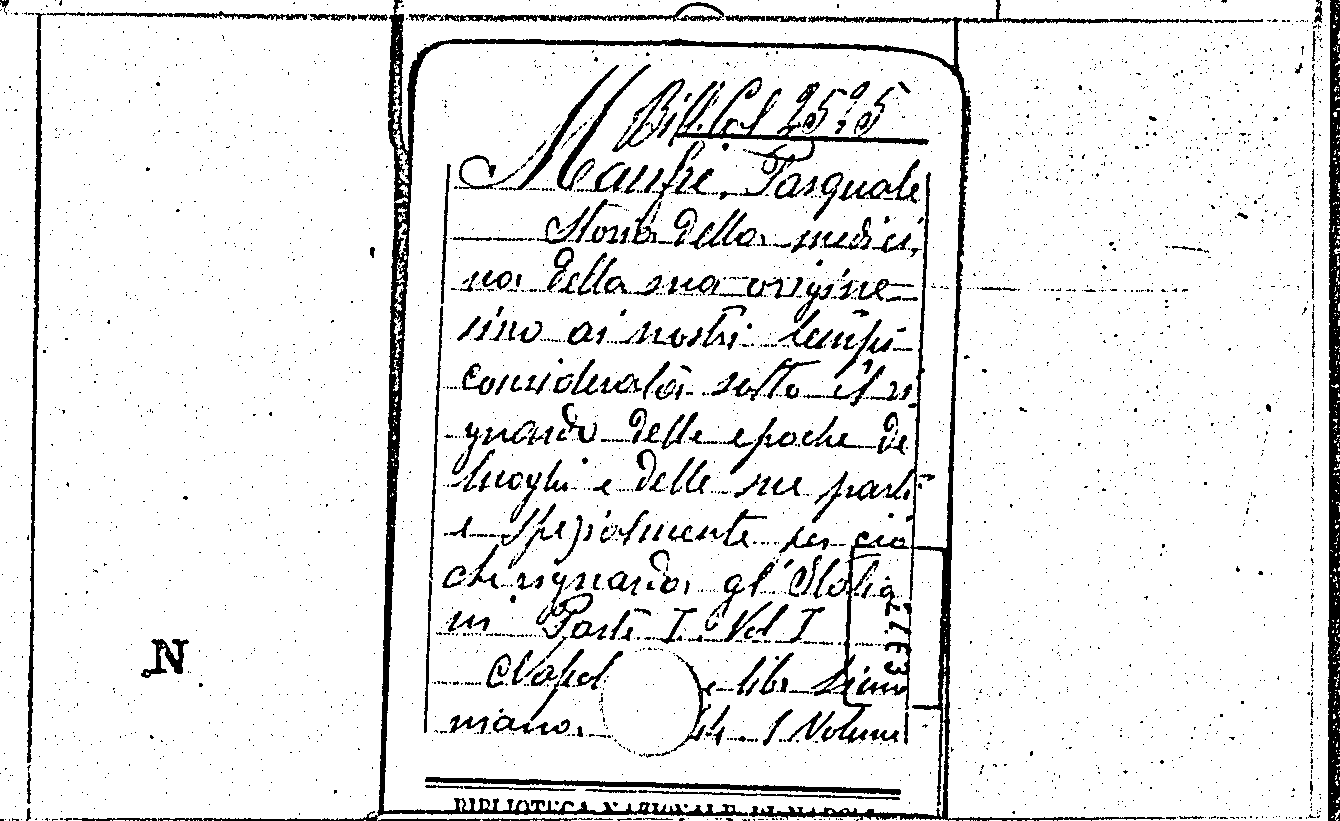 Bibl. Prov. 2525
Manfrè, Pasquale
Storia della medici
na della sua origine
sino ai nostri tempi
considerata sotto il ri
guardo delle epoche de
luoghi e delle sue parti
e spezialmente per ciò
che riguarda gl'Italia
ni Parte I. Vol I
Napol e lib.
miano. 44. 1 Volume
33777
N
BIBLIOTECA NAZIONALE DI NAPOLI